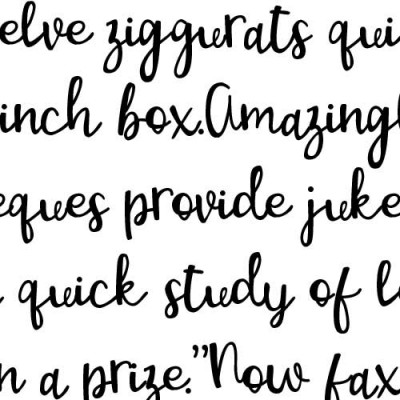 elve ziggurats qui
inch box.Amazingl
eques provide juke
quick study of l
n a prize."Now fax